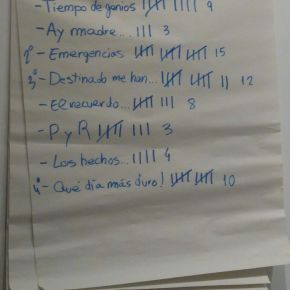 - Tiempo de genios 卌 |||| 9
- Ay madre... ||| 3
1º - Emergencias 卌 卌 卌 15
3º - Destinado me han... 卌 卌 || 12
- El recuerdo... 卌 ||| 8
- P y R 卌 ||| 3
- Los hechos... |||| 4
4º - Qué día más duro! 卌 卌 10